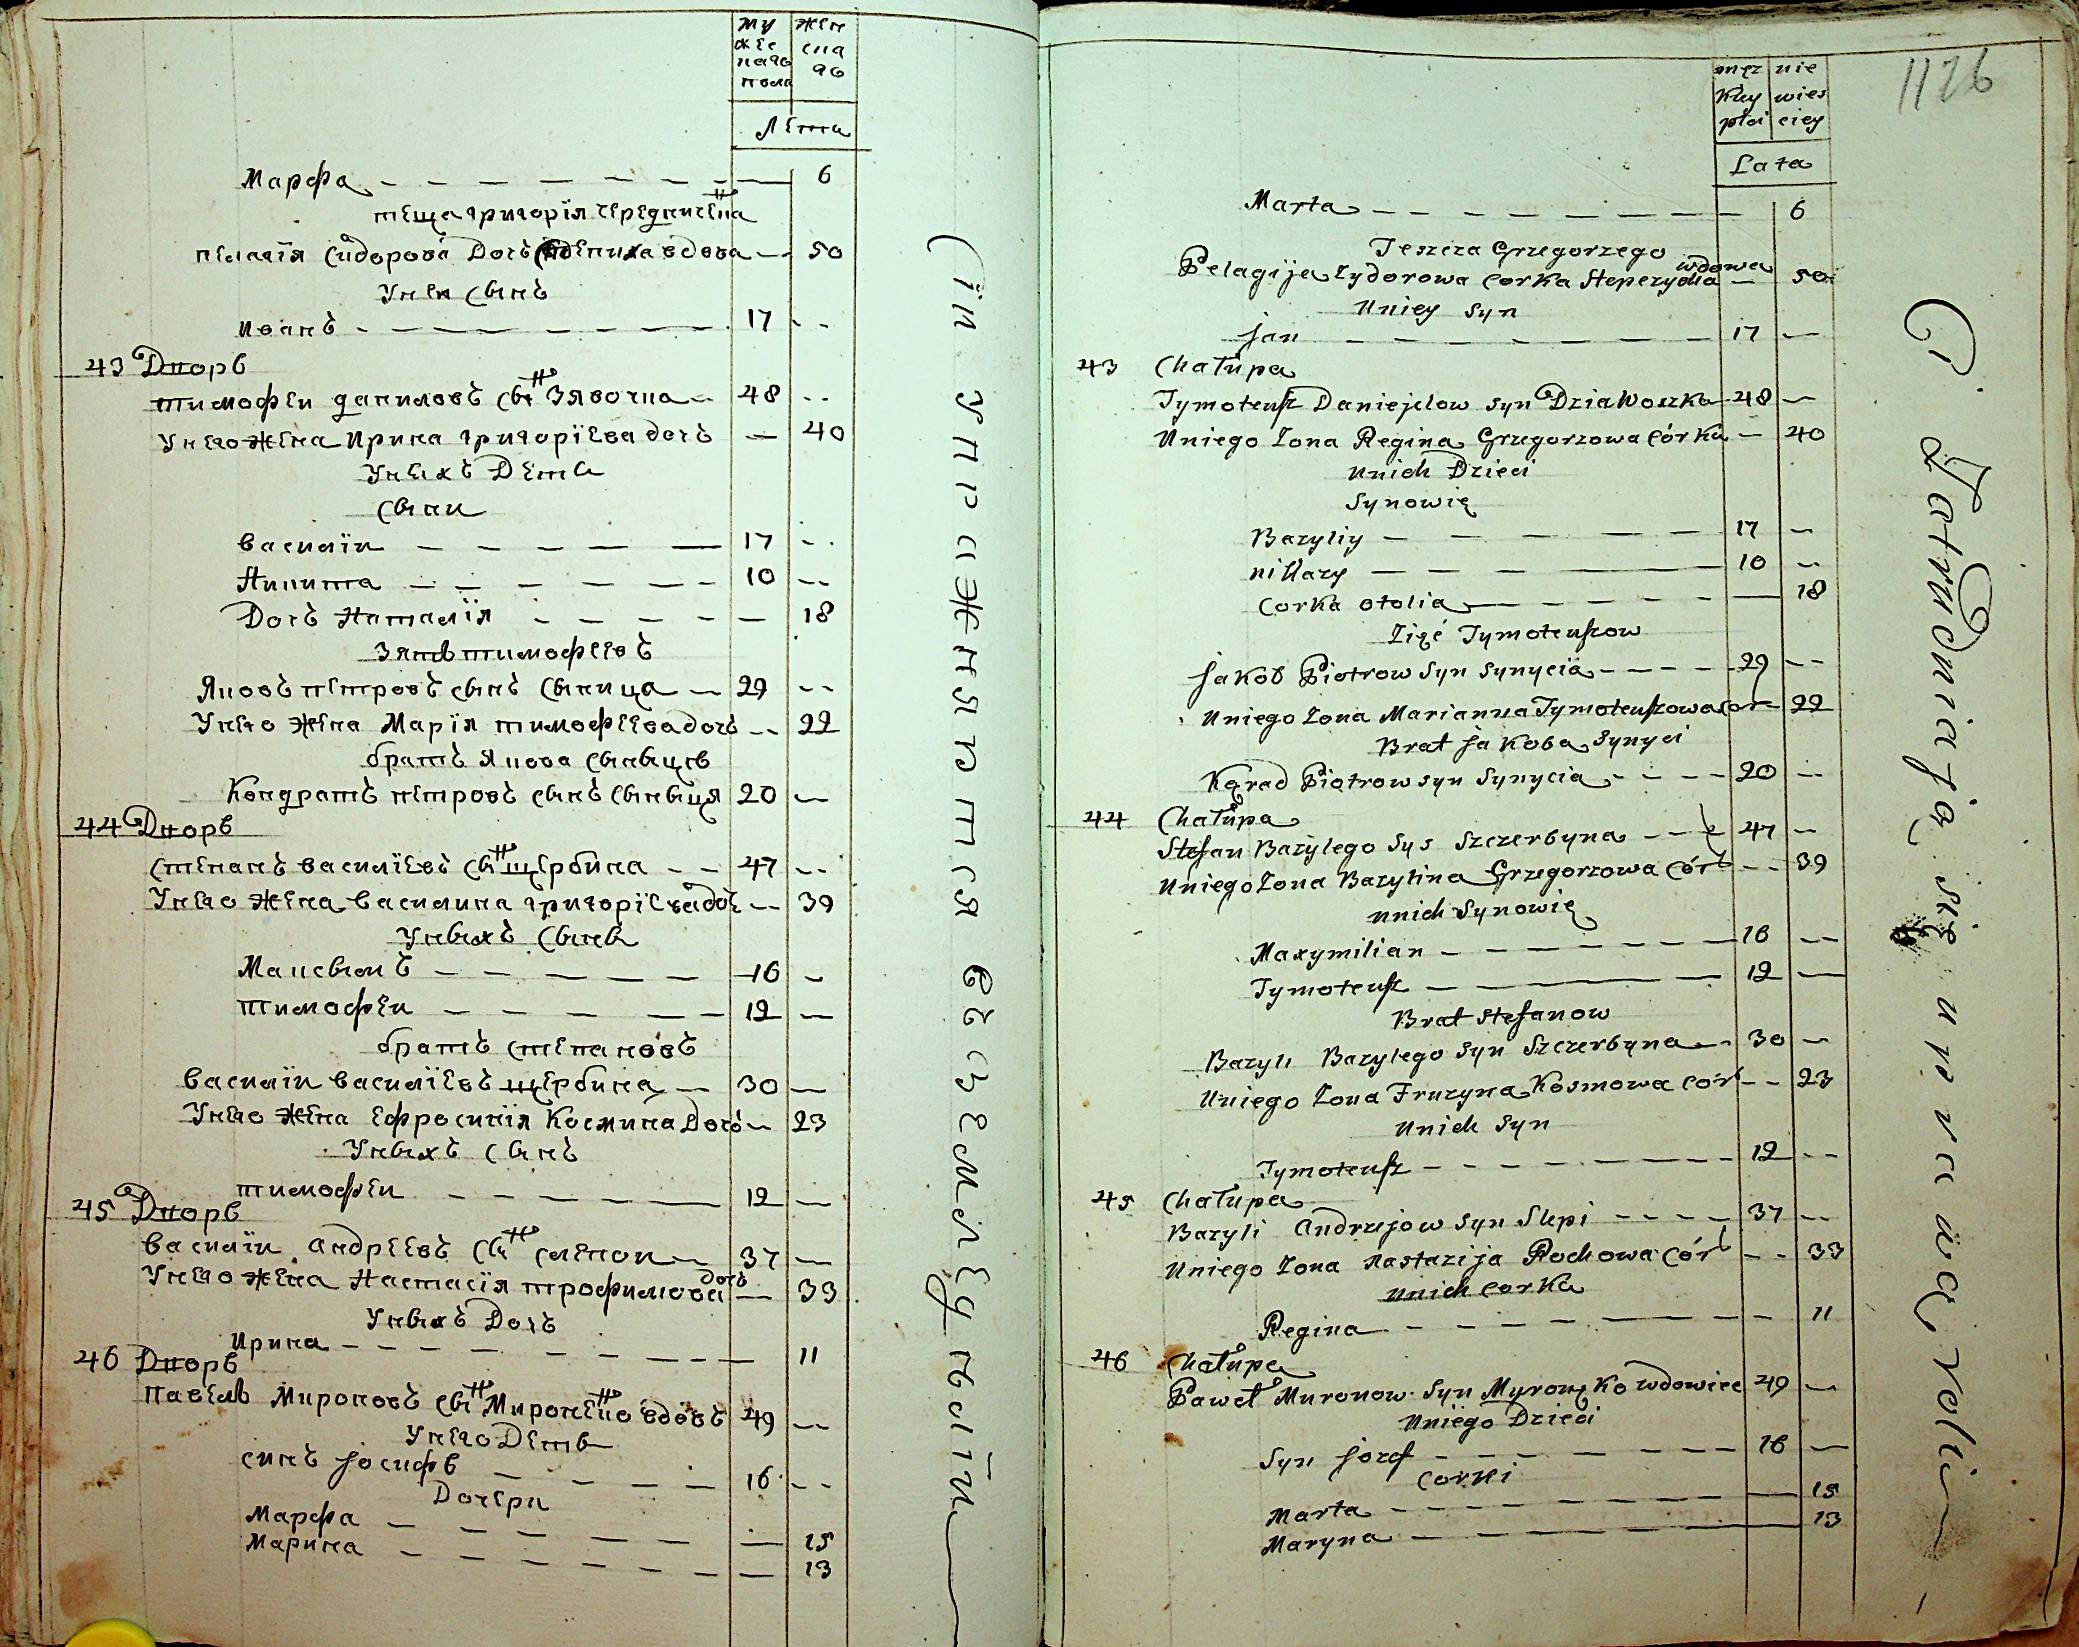 му жен
жес ска
каго го
пола
Лѣта
Марфа 6
теща григорїя чередниченка
пелагїя сидорова дочь вдова 50
У неи сынъ
иванъ 17
43 Дворъ
тимофеи даниловъ снъ Зявочка 48
У него жена ирина григорїева дочь 40
У нихъ Дети
сыни
василїи 17
Никита 10
Дочь Наталїя 18
Зять тимофеевъ
Яковъ петровъ сынъ синица 29
У него жена Марїя тимофеева дочь 22
братъ Якова синицы
Кондратъ петровъ сынъ синиця 20
44 Дворъ
степанъ василїевъ снъ щербина 47
У него жена василина григорїева доч 39
У нихъ сыны
Максимъ 16
тимофеи 12
братъ степановъ
василїи василїевъ щербина 30
У него жена ефросинїя космина Дочь 23
У нихъ сынъ
тимофеи 12
45 Дворъ
василїи андреевъ снъ слепои 37
У него жена Настасїя трофимова дочь 33
У нихъ Дочь
ирина 11
46 Дворъ
павелъ Мироновъ снъ Мироненко вдовъ 49
У него Дети
синъ іосифъ 16
Дочери
Марфа 15
Марина 13
Сїи упражняются въ земледѣлїи
1126
męz nie
kiey wies
płci ciey
Lata
Marta 6
Teszcza Grzegorzego
Pelagija Zydorowa corka Steperycha wdowa 50
Uniey syn
jan 17
43 Chałupa
Tymoteusz Daniejelow syn Dziawoczka 48
Uniego Zona Regina Grzegorzowa córka 40
Unich Dzieci
Synowię
Bazyliy 17
nikazy 10
Corka otolia 18
Zięć Tymoteuszow
jakob Piotrow syn synycia 29
Uniego Zona Marianna Tymoteuszowa cor 22
Brat jakoba synyci
Kąrad Piotrow syn synycia 20
44 Chałupa
Stefan Bazylego sys Szczerbyna 47
Uniego Zona Bazylina Grzegorzowa cór 39
Unich Synowię
Maxymilian 16
Tymoteusz 12
Brat Stefanow
Bazyli Bazylego syn Szczerbyna 30
Uniego Zona Fruzyna Kosmowa cór 23
Unich syn
Tymoteusz 12
45 Chałupa
Bazyli Andrzejow syn Slepi 37
Uniego Zona nastazija Rochowa cór 33
Unich corka
Regina 11
46 Chałupa
Paweł Muronow syn Myronęko wdowiec 49
Uniego Dzieci
Syn józef 16
corki
Marta 15
Maryna 13
Ci Zatrudniają się uprawą roli